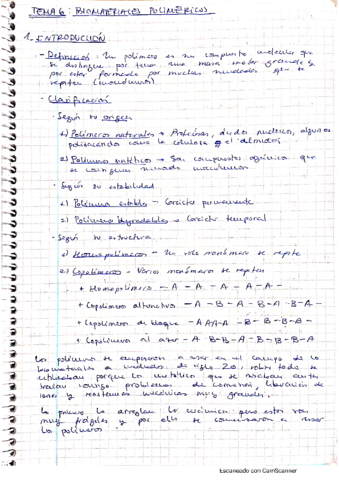 TEMA 6: BIOMATERIALES POLIMÉRICOS
1. INTRODUCCIÓN
- Definición: Un polímero es un compuesto molecular que
se distingue por tener una masa molar grande y
por estar formado por muchas unidades que se
repiten (monómeros)
- Clasificación
· Según su origen
1) Polímeros naturales → Proteínas, ácidos nucleicos, algunos
polisacáridos como la celulosa o el almidón
2) Polímeros sintéticos → Son compuestos orgánicos que
se consiguen
· Según su estabilidad
1) Polímeros estables → Carácter permanente
2) Polímeros biodegradables → Carácter temporal
· Según su estructura
1) Homopolímeros → Un solo monómero se repite
2) Copolímeros → Varios monómeros se repiten
+ Homopolímero → A - A - A - A - A -
+ Copolímero alternativo → A - B - A - B - A - B - A -
+ Copolímero de bloque → A A A - B - B - B - B -
+ Copolímero al azar → A - B - B - A - B - A - B - B - A
Los polímeros se empezaron a usar en el campo de los
biomateriales a mediados del siglo 20, sobre todo se
utilizaban porque los metálicos que se usaban antes
tenían problemas de corrosión, liberación de
iones y resistencias mecánicas muy grandes.
Lo primero lo arreglan los cerámicos pero estos son
muy frágiles y por ello se comenzaron a usar
los polímeros.
Escaneado con CamScanner